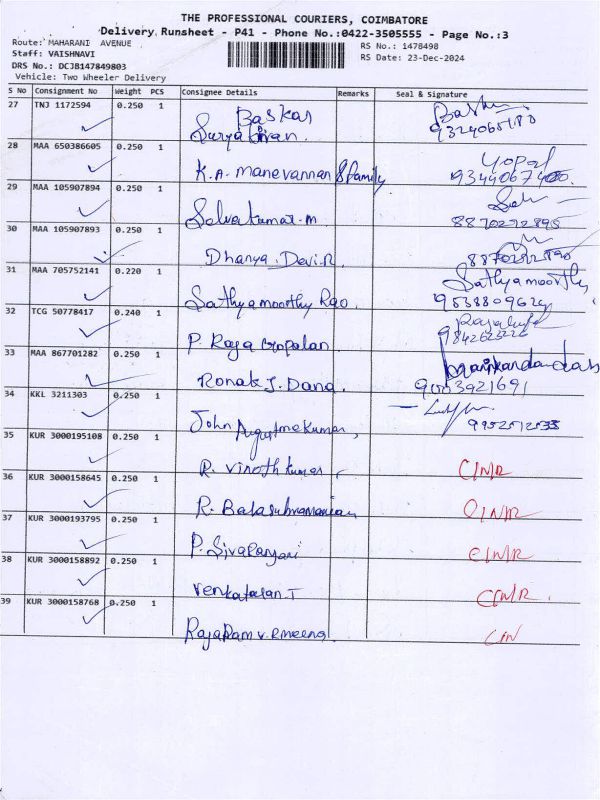 THE PROFESSIONAL COURIERS, COIMBATORE
Delivery Runsheet - P41 - Phone No.:0422-3505555 - Page No.:3
Route: MAHARANI AVENUE
Staff: VAISHNAVI
DRS No.: DCJ8147849803
Vehicle: Two Wheeler Delivery
RS No.: 1478498
RS Date: 23-Dec-2024
S No Consignment No Weight PCS Consignee Details Remarks Seal & Signature
27 TNJ 1172594 0.250 1 Baskar
28 MAA 650386605 0.250 1 K.A. Manevannan & family
29 MAA 105907894 0.250 1 Selvakumar.M 8870272895
30 MAA 105907893 0.250 1 Dhanya Devi.R
31 MAA 705752141 0.220 1 Sathyamoorthy Rao Sathyamoorthy
32 TCG 50778417 0.240 1 P. Raja Gopalan
33 MAA 867701282 0.250 1 Ronak J. Dana 9003921691
34 KKL 3211303 0.250 1 John
35 KUR 3000195108 0.250 1 R. Vinoth kumar CINR
36 KUR 3000158645 0.250 1 R. Balasubramanian
37 KUR 3000193795 0.250 1
38 KUR 3000158892 0.250 1 Venkatesan.T
39 KUR 3000158768 0.250 1